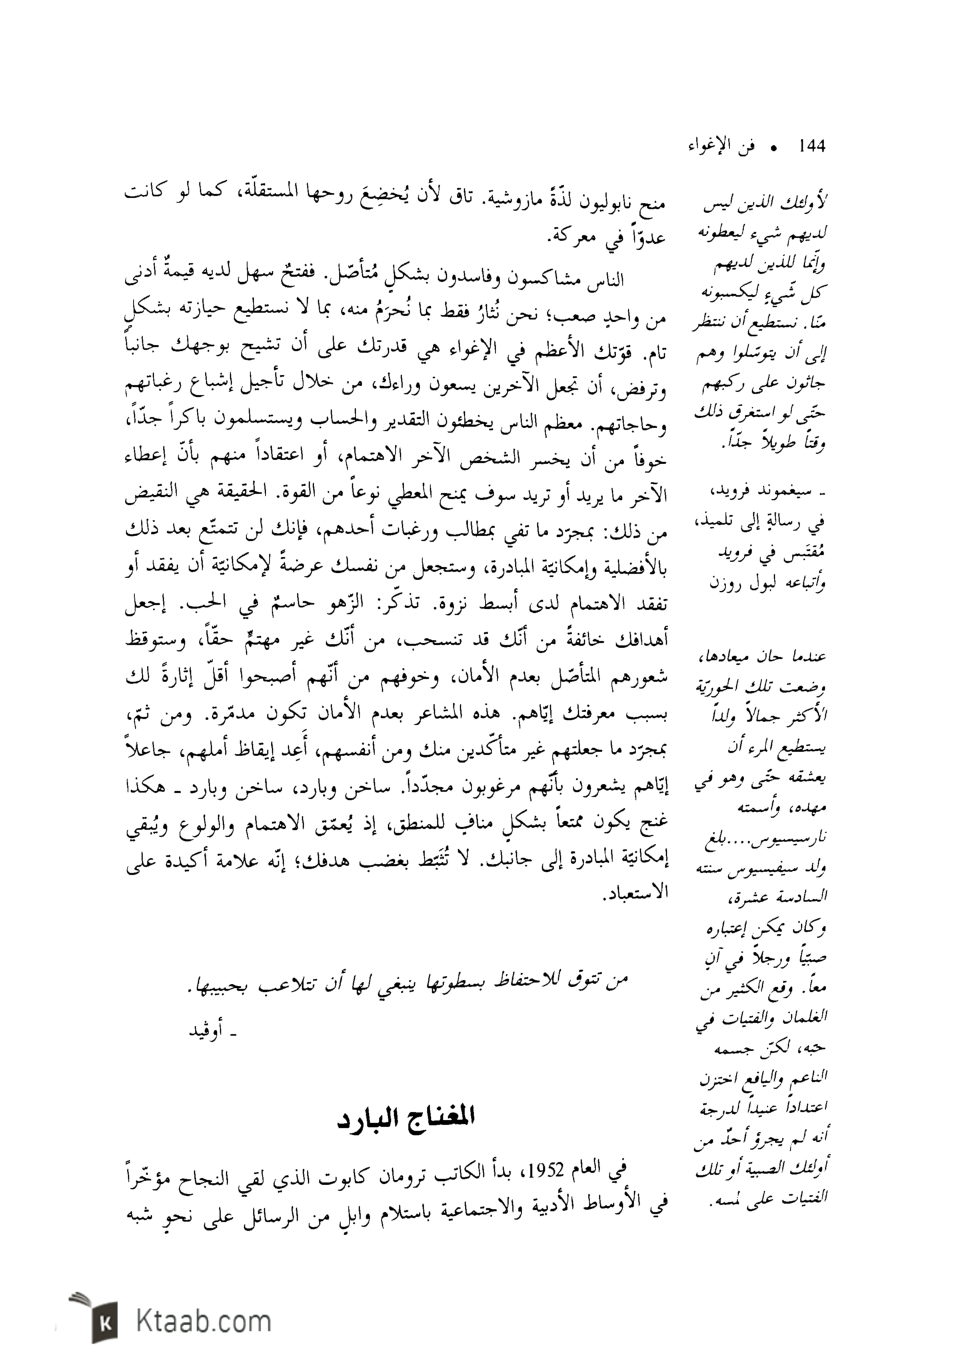 144 • فن الإغواء
منح نابوليون لذّةً مازوشية. تاق لأن يُخضِعَ روحها المستقلّة، كما لو كانت
عدوّاً في معركة.
الناس مشاكسون وفاسدون بشكلٍ مُتأصّل. ففتحٌ سهل لديه قيمةٌ أدنى
من واحدٍ صعب؛ نحن نُثارُ فقط بما نُحرَمُ منه، بما لا نستطيع حيازته بشكلٍ
تام. قوّتك الأعظم في الإغواء هي قدرتك على أن تشيح بوجهك جانباً
وترفض، أن تجعل الآخرين يسعون وراءك، من خلال تأجيل إشباع رغباتهم
وحاجاتهم. معظم الناس يخطئون التقدير والحساب ويستسلمون باكراً جدّاً،
خوفاً من أن يخسر الشخص الآخر الاهتمام، أو اعتقاداً منهم بأنّ إعطاء
الآخر ما يريد أو تريد سوف يمنح المعطي نوعاً من القوة. الحقيقة هي النقيض
من ذلك: بمجرّد ما تفي بمطالب ورغبات أحدهم، فإنك لن تتمتّع بعد ذلك
بالأفضلية وإمكانيّة المبادرة، وستجعل من نفسك عرضةً لإمكانيّة أن يفقد أو
تفقد الاهتمام لدى أبسط نزوة. تذكّر: الزّهو حاسمٌ في الحب. إجعل
أهدافك خائفةً من أنّك قد تنسحب، من أنّك غير مهتمٍّ حقّاً، وستوقظ
شعورهم المتأصّل بعدم الأمان، وخوفهم من أنّهم أصبحوا أقلّ إثارةً لك
بسبب معرفتك إيّاهم. هذه المشاعر بعدم الأمان تكون مدمّرة. ومن ثمّ،
بمجرّد ما جعلتهم غير متأكّدين منك ومن أنفسهم، أَعِد إيقاظ أملهم، جاعلاً
إيّاهم يشعرون بأنّهم مرغوبون مجدّداً. ساخن وبارد، ساخن وبارد ـ هكذا
غنج يكون ممتعاً بشكلٍ منافٍ للمنطق، إذ يُعمّق الاهتمام والولوع ويُبقي
إمكانيّة المبادرة إلى جانبك. لا تُثبَّط بغضب هدفك؛ إنّه علامة أكيدة على
الاستعباد.
من تتوق للاحتفاظ بسطوتها ينبغي لها أن تتلاعب بحبيبها.
ـ أوڤيد
المغناج البارد
في العام 1952، بدأ الكاتب ترومان كابوت الذي لقي النجاح مؤخّراً
في الأوساط الأدبية والاجتماعية باستلام وابلٍ من الرسائل على نحوٍ شبه
لأولئك الذين ليس
لديهم شيء ليعطونه
وإنّما للذين لديهم
كل شيءٍ ليكسبونه
منّا. نستطيع أن ننتظر
إلى أن يتوسّلوا وهم
جاثون على ركبهم
حتّى لو استغرق ذلك
وقتاً طويلاً جدّاً.
ـ سيغموند فرويد،
في رسالةٍ إلى تلميذ،
مُقتَبس في فرويد
وأتباعه لبول روزن
عندما حان ميعادها،
وضعت تلك الحوريّة
الأكثر جمالاً ولداً
يستطيع المرء أن
يعشقه حتّى وهو في
مهده، وأسمته
نارسيسيوس....بلغ
ولد سيفيسيوس سنته
السادسة عشرة،
وكان يمكن إعتباره
صبيّاً ورجلاً في آنٍ
معاً. وقع الكثير من
الغلمان والفتيات في
حبّه، لكنّ جسمه
الناعم واليافع اختزن
اعتداداً عنيداً لدرجة
أنه لم يجرؤ أحدٌ من
أولئك الصبية أو تلك
الفتيات على لمسه.
Ktaab.com